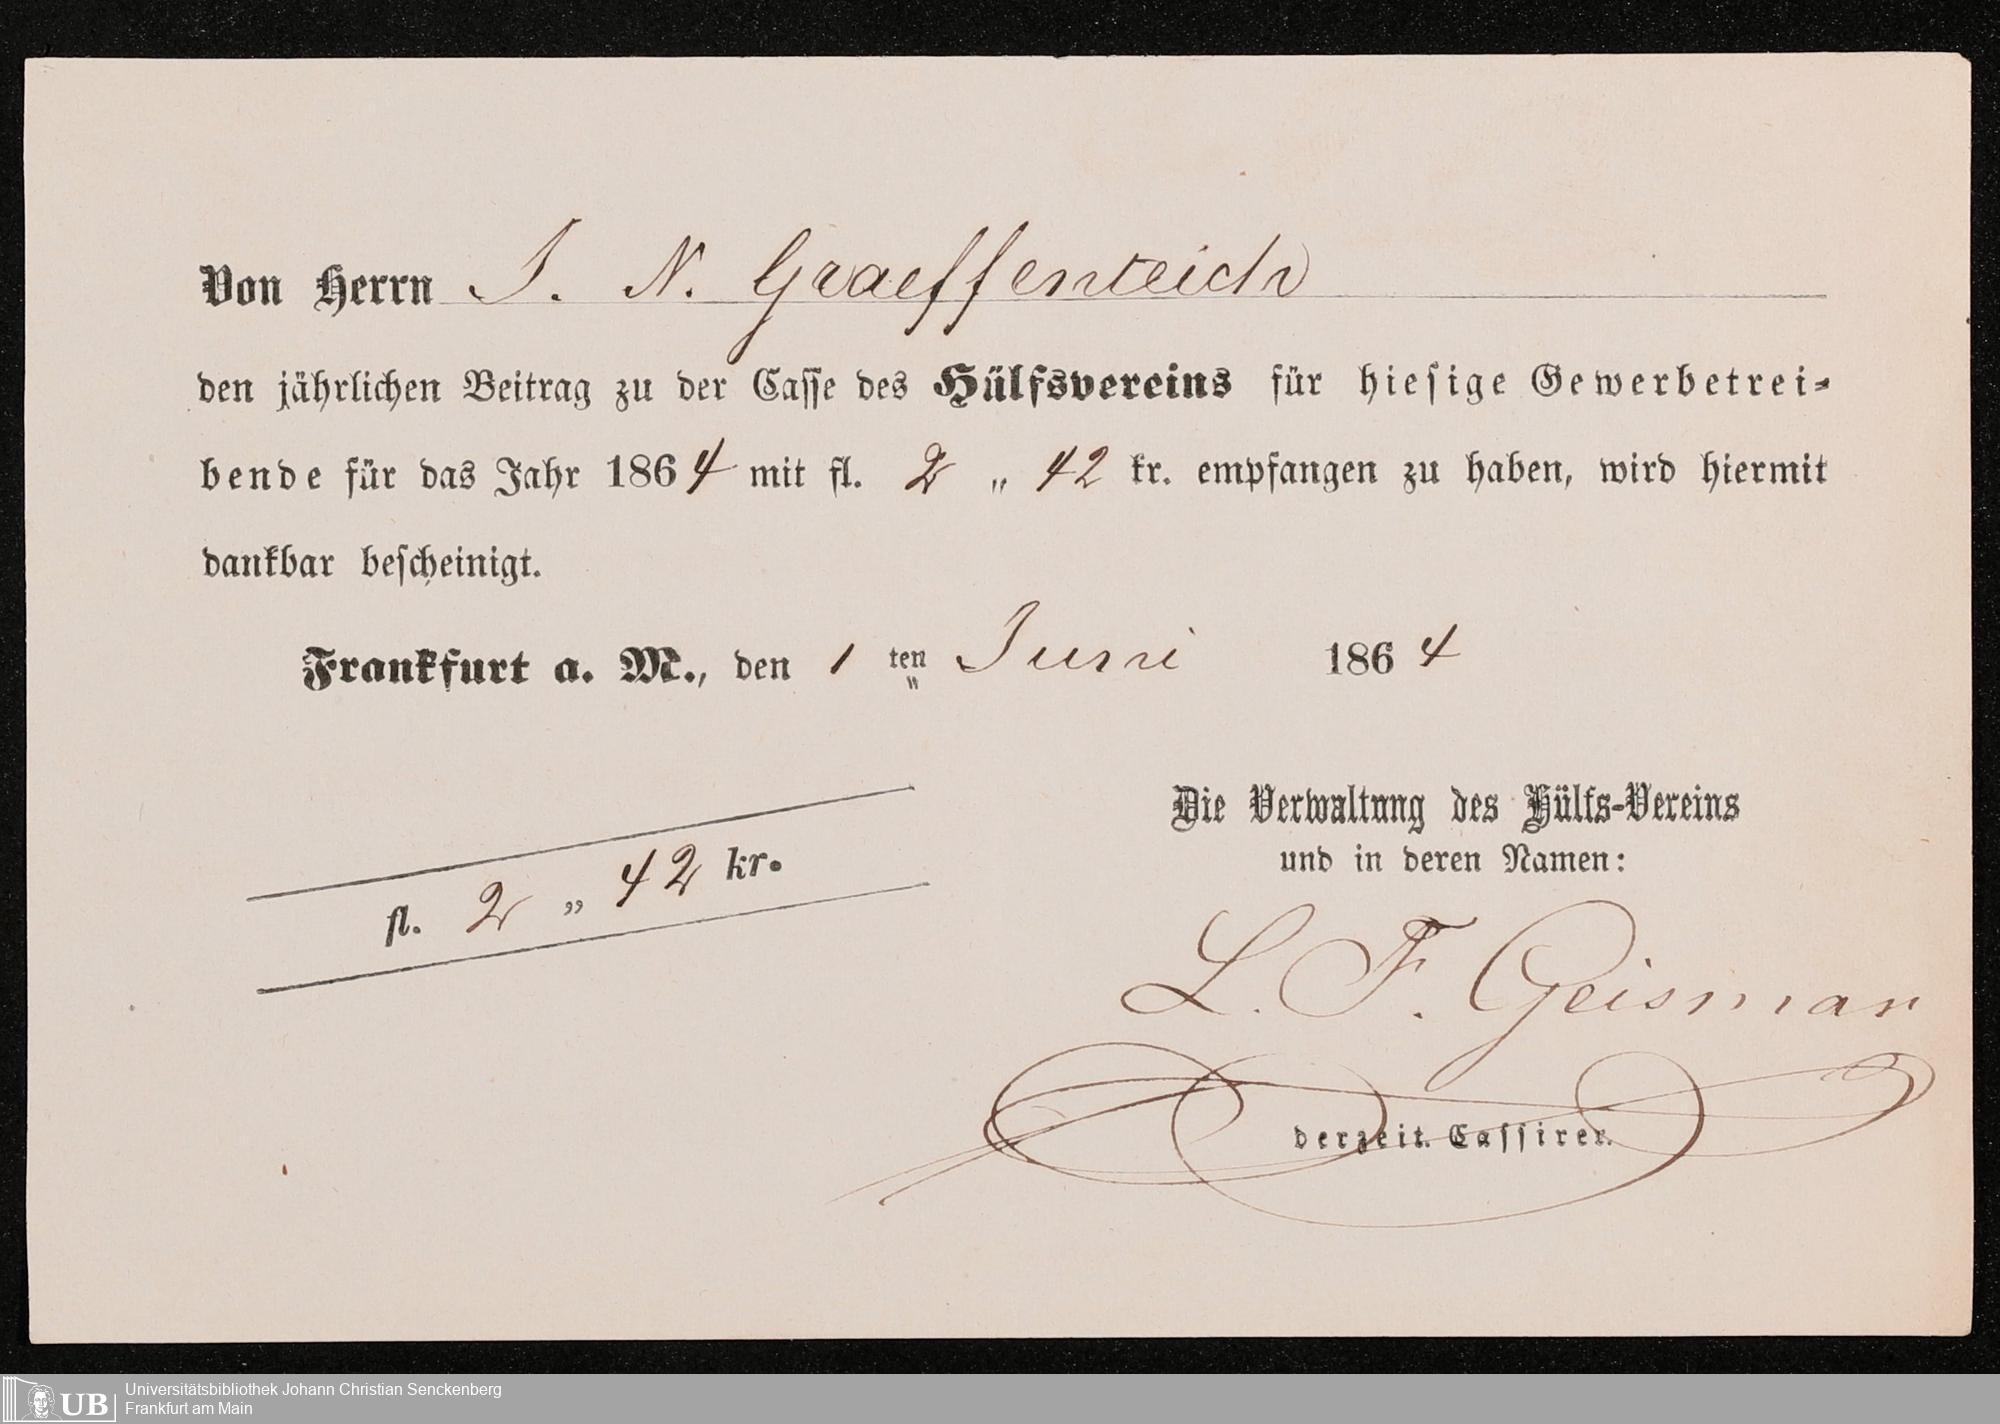 Von Herrn J. N. Graeffenteich
den jährlichen Beitrag zu der Casse des Hülfsvereins für hiesige Gewerbetrei-
bende für das Jahr 1864 mit fl. 2 „ 42 kr. empfangen zu haben, wird hiermit
dankbar bescheinigt.
Frankfurt a. M., den 1 ten Juni 1864
fl. 2 „ 42 kr.
Die Verwaltung des Hülfs-Vereins
und in deren Namen:
L. F. Geisman
derzeit. Cassirer.
UB
Universitätsbibliothek Johann Christian Senckenberg
Frankfurt am Main